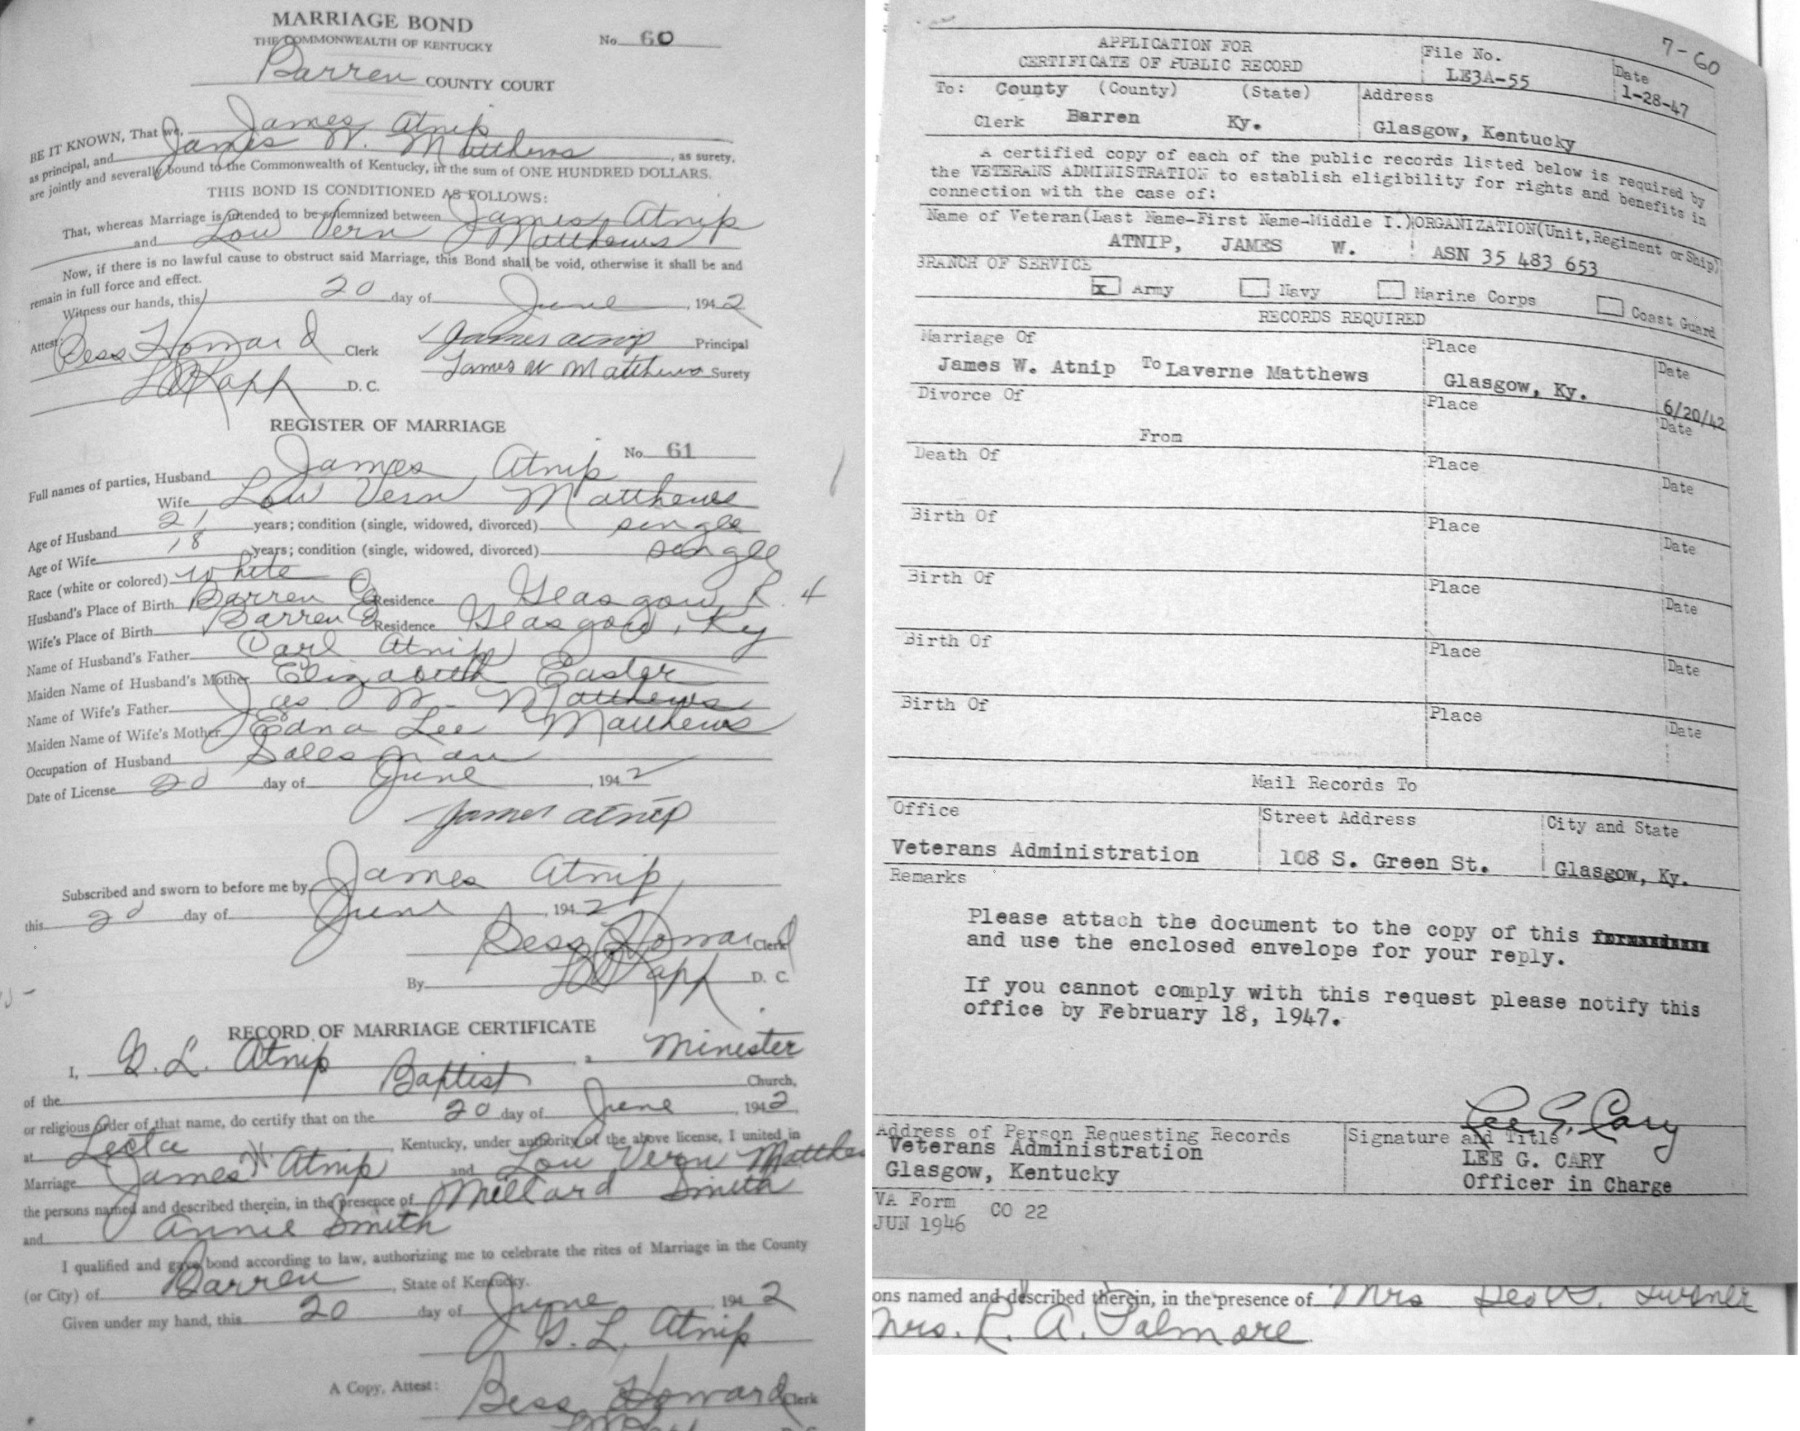 MARRIAGE BOND
THE COMMONWEALTH OF KENTUCKY
No. 60
Barren COUNTY COURT
BE IT KNOWN, That we, James Atnip
as principal, and James W. Matthews, as surety,
are jointly and severally bound to the Commonwealth of Kentucky, in the sum of ONE HUNDRED DOLLARS.
THIS BOND IS CONDITIONED AS FOLLOWS:
That, whereas Marriage is intended to be solemnized between James Atnip
and Lou Vern Matthews
Now, if there is no lawful cause to obstruct said Marriage, this Bond shall be void, otherwise it shall be and
remain in full force and effect.
Witness our hands, this 20 day of June, 1942
Attest: Bess Howard Clerk James Atnip Principal
D. C. James W Matthews Surety
REGISTER OF MARRIAGE
No. 61
Full names of parties, Husband James Atnip
Wife Lou Vern Matthews
Age of Husband 21 years; condition (single, widowed, divorced) single
Age of Wife 18 years; condition (single, widowed, divorced) single
Race (white or colored) White
Husband's Place of Birth Barren Co Residence Glasgow R. 4
Wife's Place of Birth Barren Co Residence Glasgow, Ky
Name of Husband's Father Carl Atnip
Maiden Name of Husband's Mother Elizabeth Easter
Name of Wife's Father Jas W. Matthews
Maiden Name of Wife's Mother Edna Lee Matthews
Occupation of Husband Salesman
Date of License 20 day of June, 1942
James Atnip
Subscribed and sworn to before me by James Atnip,
this 20 day of June, 1942
Bess Howard Clerk
By D. C.
RECORD OF MARRIAGE CERTIFICATE
I, G. L. Atnip, a Minester
of the Baptist Church,
or religious order of that name, do certify that on the 20 day of June, 1942,
at Lecta, Kentucky, under authority of the above license, I united in
Marriage James W Atnip and Lou Vern Matthews
the persons named and described therein, in the presence of Millard Smith
and Annie Smith
I qualified and gave bond according to law, authorizing me to celebrate the rites of Marriage in the County
(or City) of Barren, State of Kentucky.
Given under my hand, this 20 day of June 1942
G. L. Atnip
A Copy, Attest: Bess Howard Clerk
7-60
APPLICATION FOR
CERTIFICATE OF PUBLIC RECORD
File No.
LE3A-55
Date
1-28-47
To: County (County) (State) Address
Clerk Barren Ky. Glasgow, Kentucky
A certified copy of each of the public records listed below is required by
the VETERANS ADMINISTRATION to establish eligibility for rights and benefits in
connection with the case of:
Name of Veteran(Last Name-First Name-Middle I.) ORGANIZATION(Unit, Regiment or Ship)
ATNIP, JAMES W. ASN 35 483 653
BRANCH OF SERVICE
x Army Navy Marine Corps Coast Guard
RECORDS REQUIRED
Marriage Of Place Date
James W. Atnip To Laverne Matthews Glasgow, Ky. 6/20/42
Divorce Of Place Date
From
Death Of Place Date
Birth Of Place Date
Birth Of Place Date
Birth Of Place Date
Birth Of Place Date
Mail Records To
Office Street Address City and State
Veterans Administration 108 S. Green St. Glasgow, Ky.
Remarks
Please attach the document to the copy of this
and use the enclosed envelope for your reply.
If you cannot comply with this request please notify this
office by February 18, 1947.
Lee G. Cary
Address of Person Requesting Records Signature and Title
Veterans Administration LEE G. CARY
Glasgow, Kentucky Officer in Charge
VA Form CO 22
JUN 1946
ons named and described therein, in the presence of Mrs Turner
Mrs. R. A. Palmore